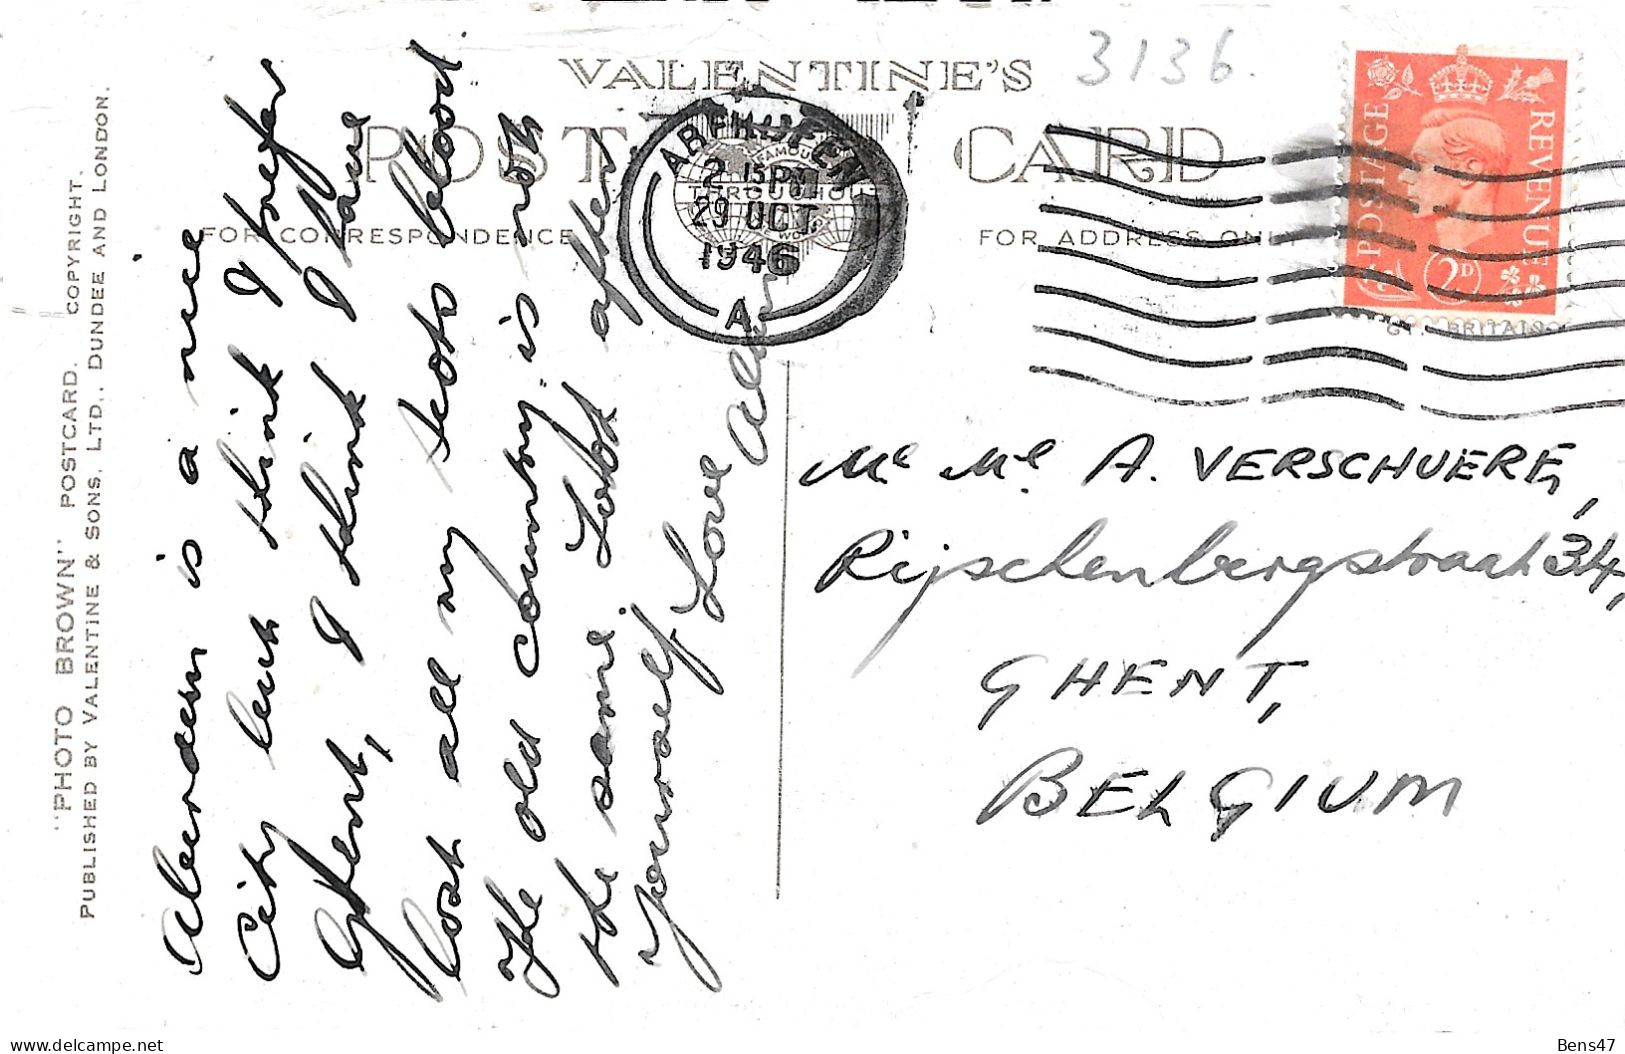 VALENTINE'S
3136.
POST CARD
FOR CORRESPONDENCE
FOR ADDRESS ONLY
FAMOUS
THROUGHOUT
WORLD
ABERDEEN
2 15 PM
29 OCT
1946
A
POSTAGE
REVENUE
2D
"PHOTO BROWN" POSTCARD. COPYRIGHT.
PUBLISHED BY VALENTINE & SONS, LTD., DUNDEE AND LONDON.
Aberdeen is a nice
City but think I prefer
Ghent, I think I have
lost all my Scots blood
The old country is not
the same. Look after
yourself Love
Me Me A. VERSCHUERE,
Rijschenbergstraat 34,
GHENT,
BELGIUM
Bens47
delcampe.net